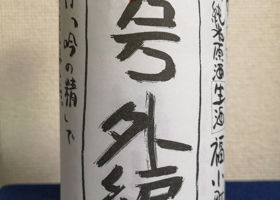 純米原酒生酒「福小町
号外編
い、吟の精」で